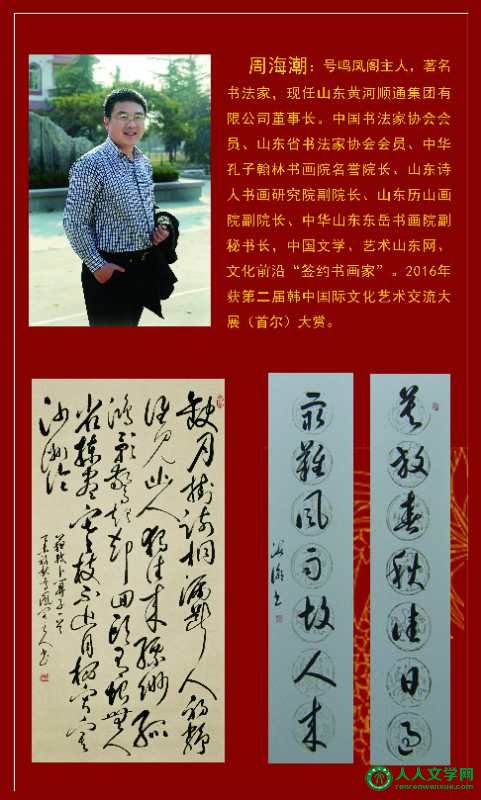 周海潮：号鸣凤阁主人，著名
书法家，现任山东黄河顺通集团有
限公司董事长。中国书法家协会会
员、山东省书法家协会会员、中华
孔子翰林书画院名誉院长、山东诗
人书画研究院副院长、山东历山画
院副院长、中华山东东岳书画院副
秘书长，中国文学、艺术山东网、
文化前沿“签约书画家”。2016年
获第二届韩中国际文化艺术交流大
展（首尔）大赏。
缺月掛疏桐漏斷人初靜
谁見幽人獨往來縹緲孤
鴻影驚起却回頭有恨無人
省揀盡寒枝不肯栖寂寞
沙洲冷
蘇軾卜算子一首
莫放春秋佳日過
最難風雨故人来
海潮书
人人文学网
renrenwenxue.com